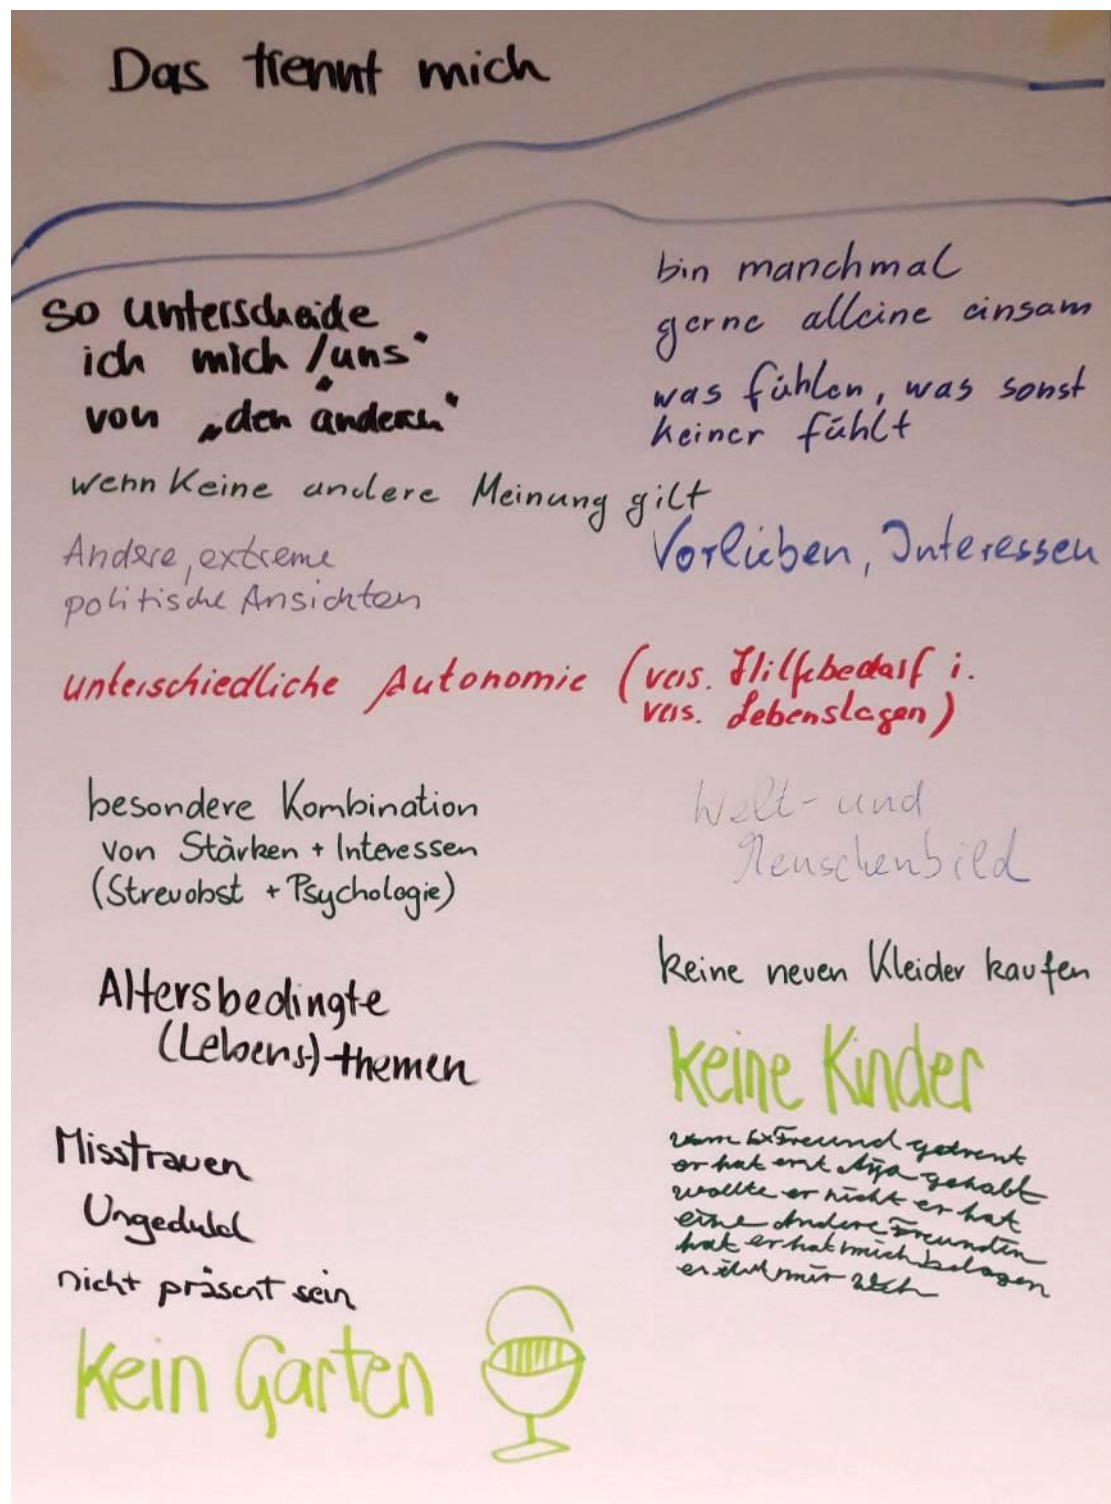 Das trennt mich
so unterscheide
ich mich /"uns"
von „den anderen"
bin manchmal
gerne alleine einsam
was fühlen, was sonst
keiner fühlt
wenn keine andere Meinung gilt
Andere, extreme
politische Ansichten
Vorlieben, Interessen
unterschiedliche Autonomie (vers. Hilfebedarf i.
vers. Lebenslagen)
besondere Kombination
von Stärken + Interessen
(Streuobst + Psychologie)
Welt- und
Menschenbild
Altersbedingte
(Lebens-)themen
keine neuen Kleider kaufen
keine Kinder
Misstrauen
Ungeduld
nicht präsent sein
kein Garten
vom ExFreund getrent
er hat erst gehabt
wollte er nicht er hat
eine Andere Freundin
hat er hat mich belogen
er mir